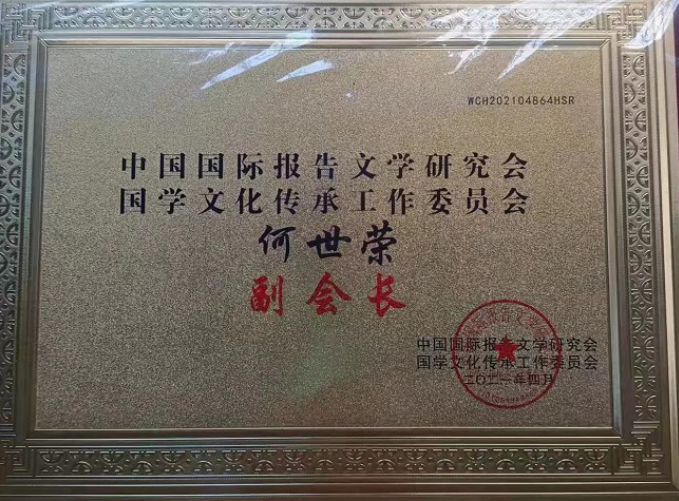 WCH202104864HSR
中国国际报告文学研究会
国学文化传承工作委员会
何世荣
副会长
中国国际报告文学研究会
国学文化传承工作委员会
二〇二一年四月